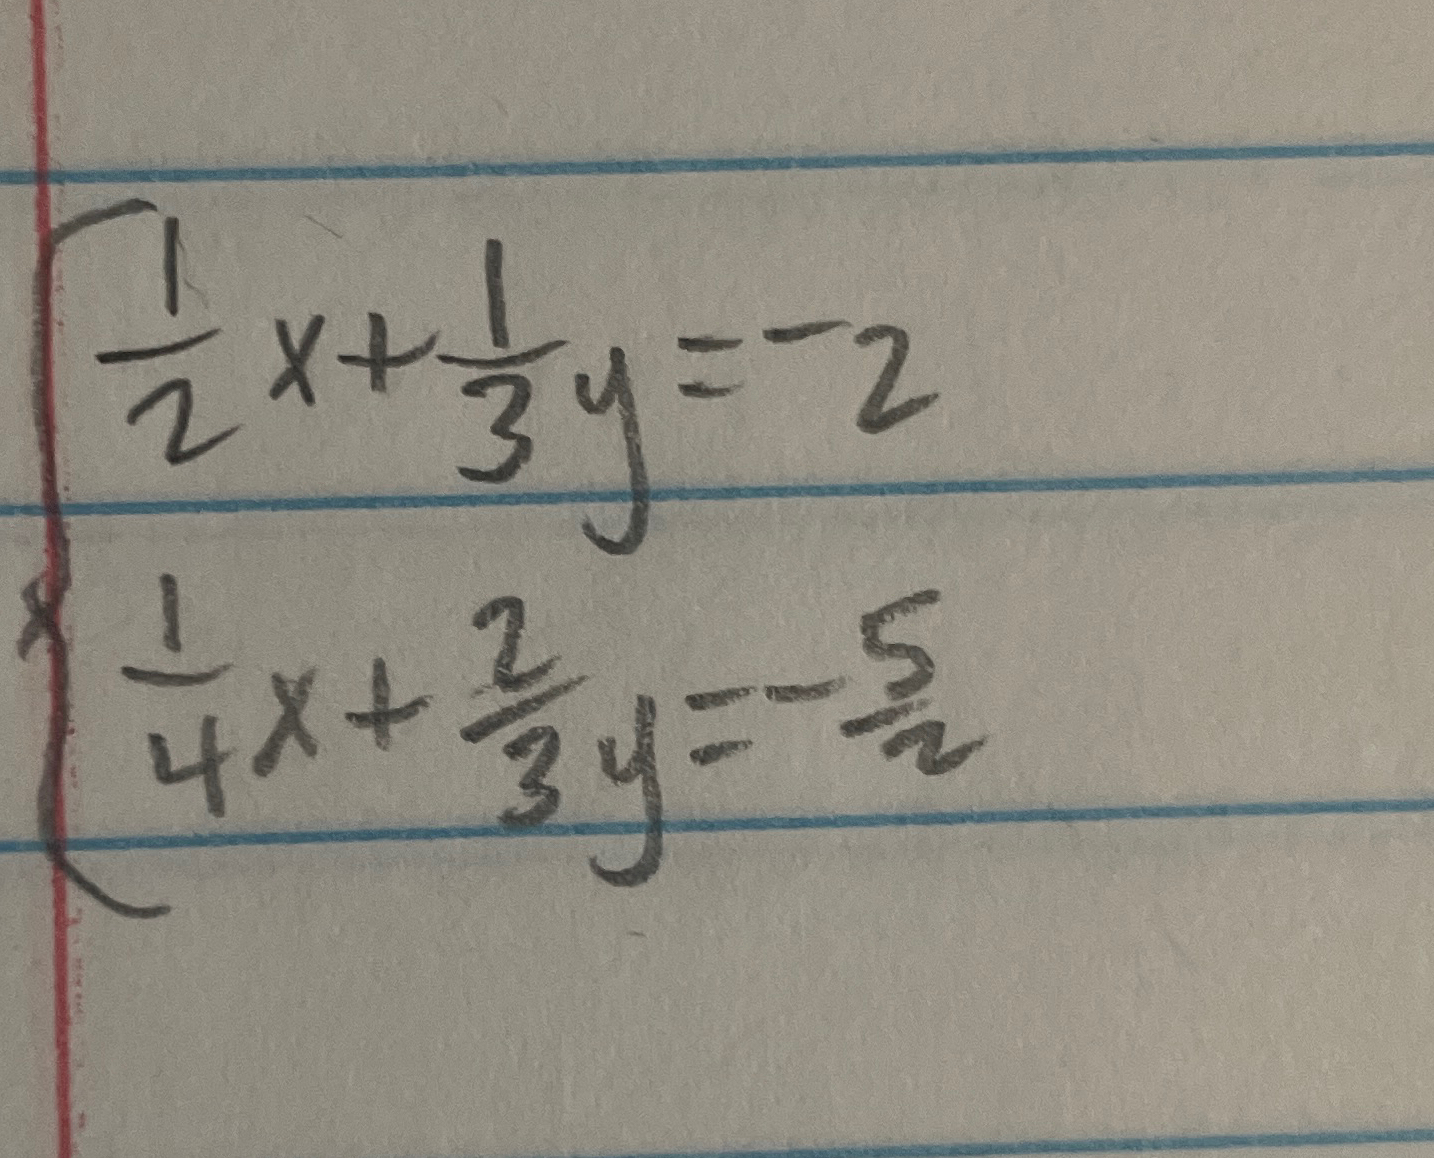 1/2 x + 1/3 y = -2
1/4 x + 2/3 y = -5/2